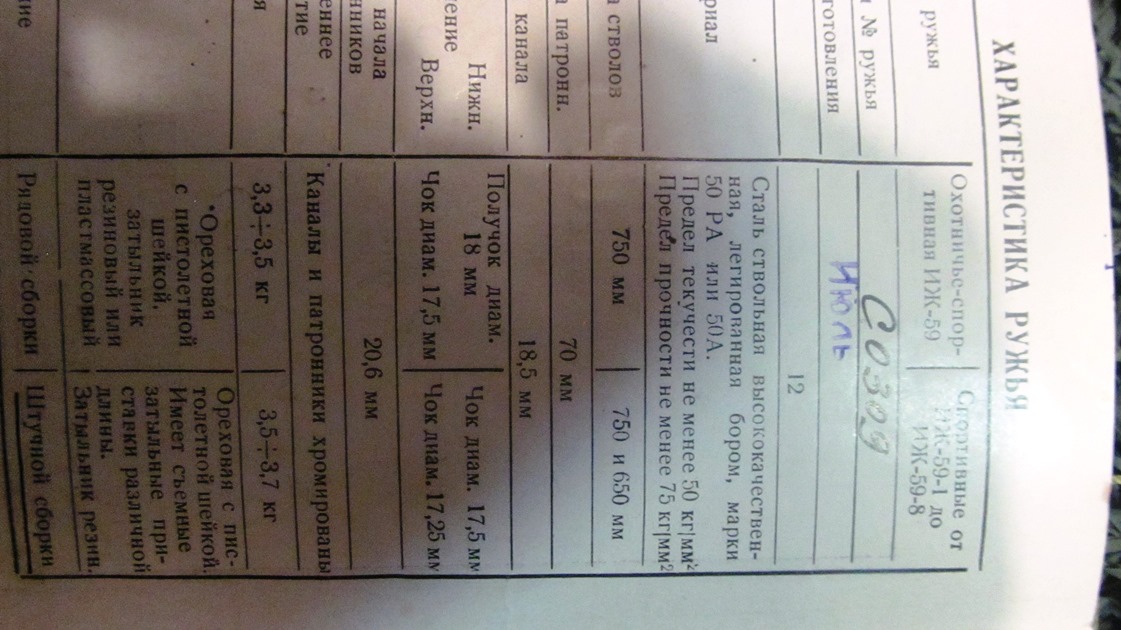 ХАРАКТЕРИСТИКА РУЖЬЯ
ружья
Охотничье-спор-
тивная ИЖ-59
Спортивные от
ИЖ-59-1 до
ИЖ-59-8
№ ружья
С0309
готовления
Июль
12
риал
Сталь ствольная высококачествен-
ная, легированная бором, марки
50 РА или 50А.
Предел текучести не менее 50 кг/мм²
Предел прочности не менее 75 кг/мм²
а стволов
750 мм
750 и 650 мм
а патронн.
70 мм
канала
18,5 мм
тение
Нижн.
Верхн.
Получок диам.
18 мм
Чок диам. 17,5 мм
Чок диам. 17,5 мм
Чок диам. 17,25 мм
начала
нников
20,6 мм
еннее
тие
Каналы и патронники хромированы
я
3,3÷3,5 кг
3,5÷3,7 кг
Ореховая
с пистолетной
шейкой,
затыльник
резиновый или
пластмассовый
Ореховая с пис-
толетной шейкой.
Имеет съемные
затыльные при-
ставки различной
длины.
Затыльник резин.
ие
Рядовой сборки
Штучной сборки